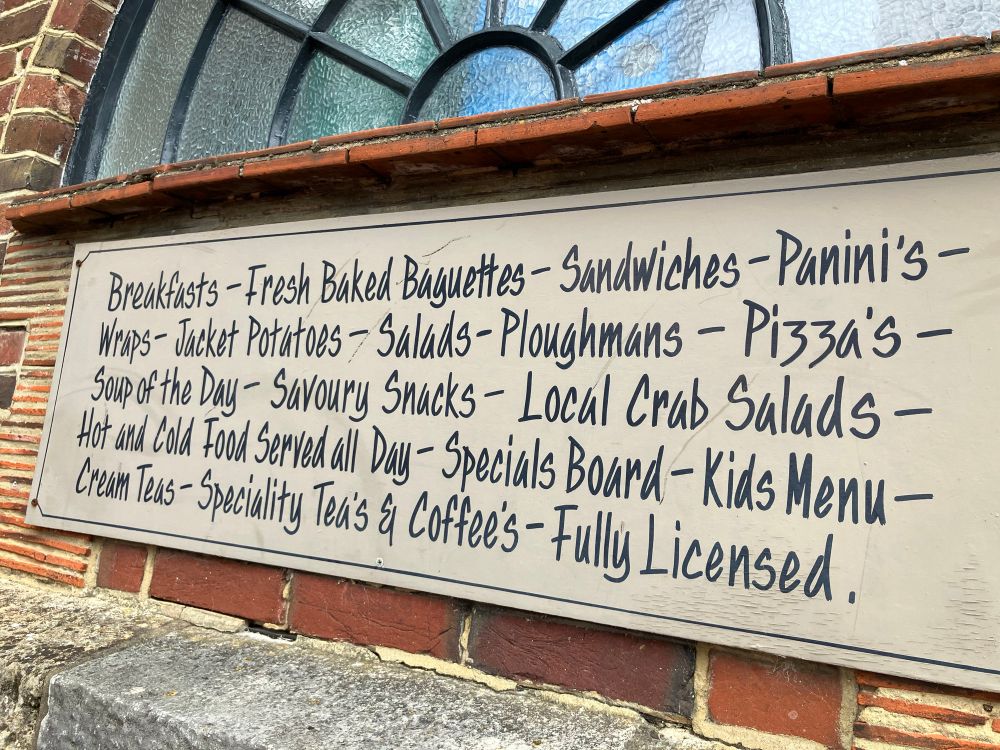 Breakfasts - Fresh Baked Baguettes - Sandwiches - Panini's -
Wraps - Jacket Potatoes - Salads - Ploughmans - Pizza's -
Soup of the Day - Savoury Snacks - Local Crab Salads -
Hot and Cold Food Served all Day - Specials Board - Kids Menu -
Cream Teas - Speciality Tea's & Coffee's - Fully Licensed.